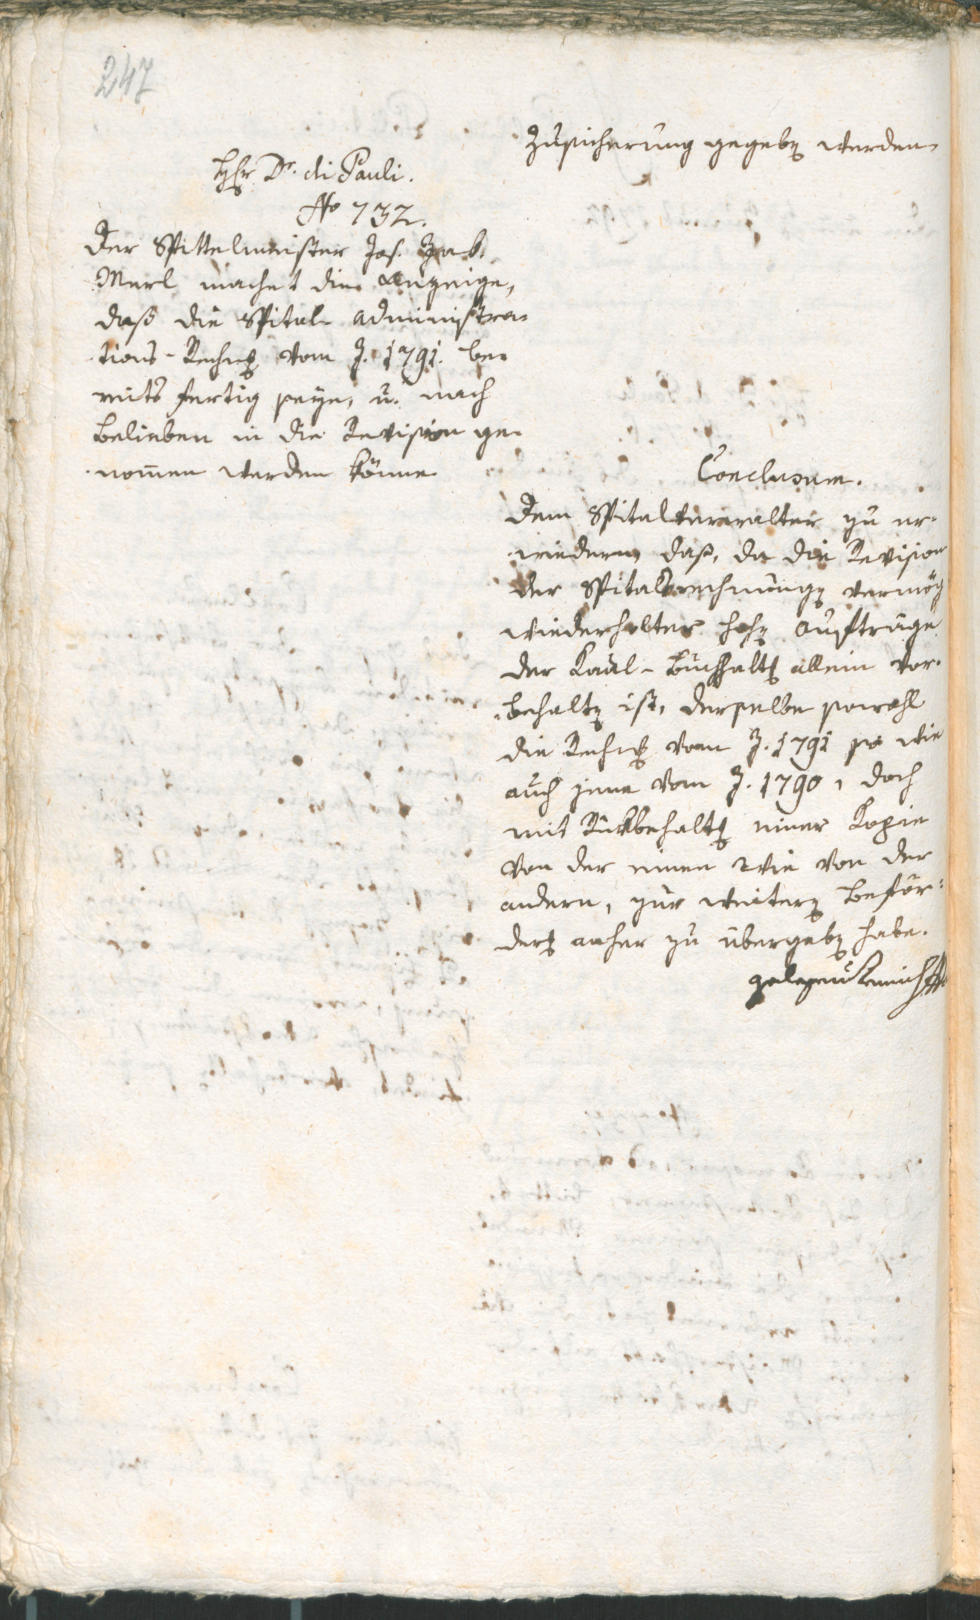 247
Zusicherung gegeben werden.
Hr. Dr. di Pauli.
No 732.
Der Spittelmeister Jos.
Merl machet die Anzeige,
daß die Spital- Administra-
tions-Rechng vom J. 1791. be-
reits fertig seye, u. nach
Belieben in die Revision ge-
nommen werden könne.
Conclusum.
Dem Spitalverwalter zu er-
wiedern, daß, da die Revision
der Spitalrechnungen vermög
wiederholter hohen Aufträge
der Kaal-Buchhaltg allein vor-
behalten ist, derselbe sowohl
die Rechng vom J. 1791 so wie
auch jene vom J. 1790, doch
mit Rückbehaltg einer Kopie
von der einen wie von der
andern, zur weitern Beför-
derg anher zu übergeben habe.
gelesen